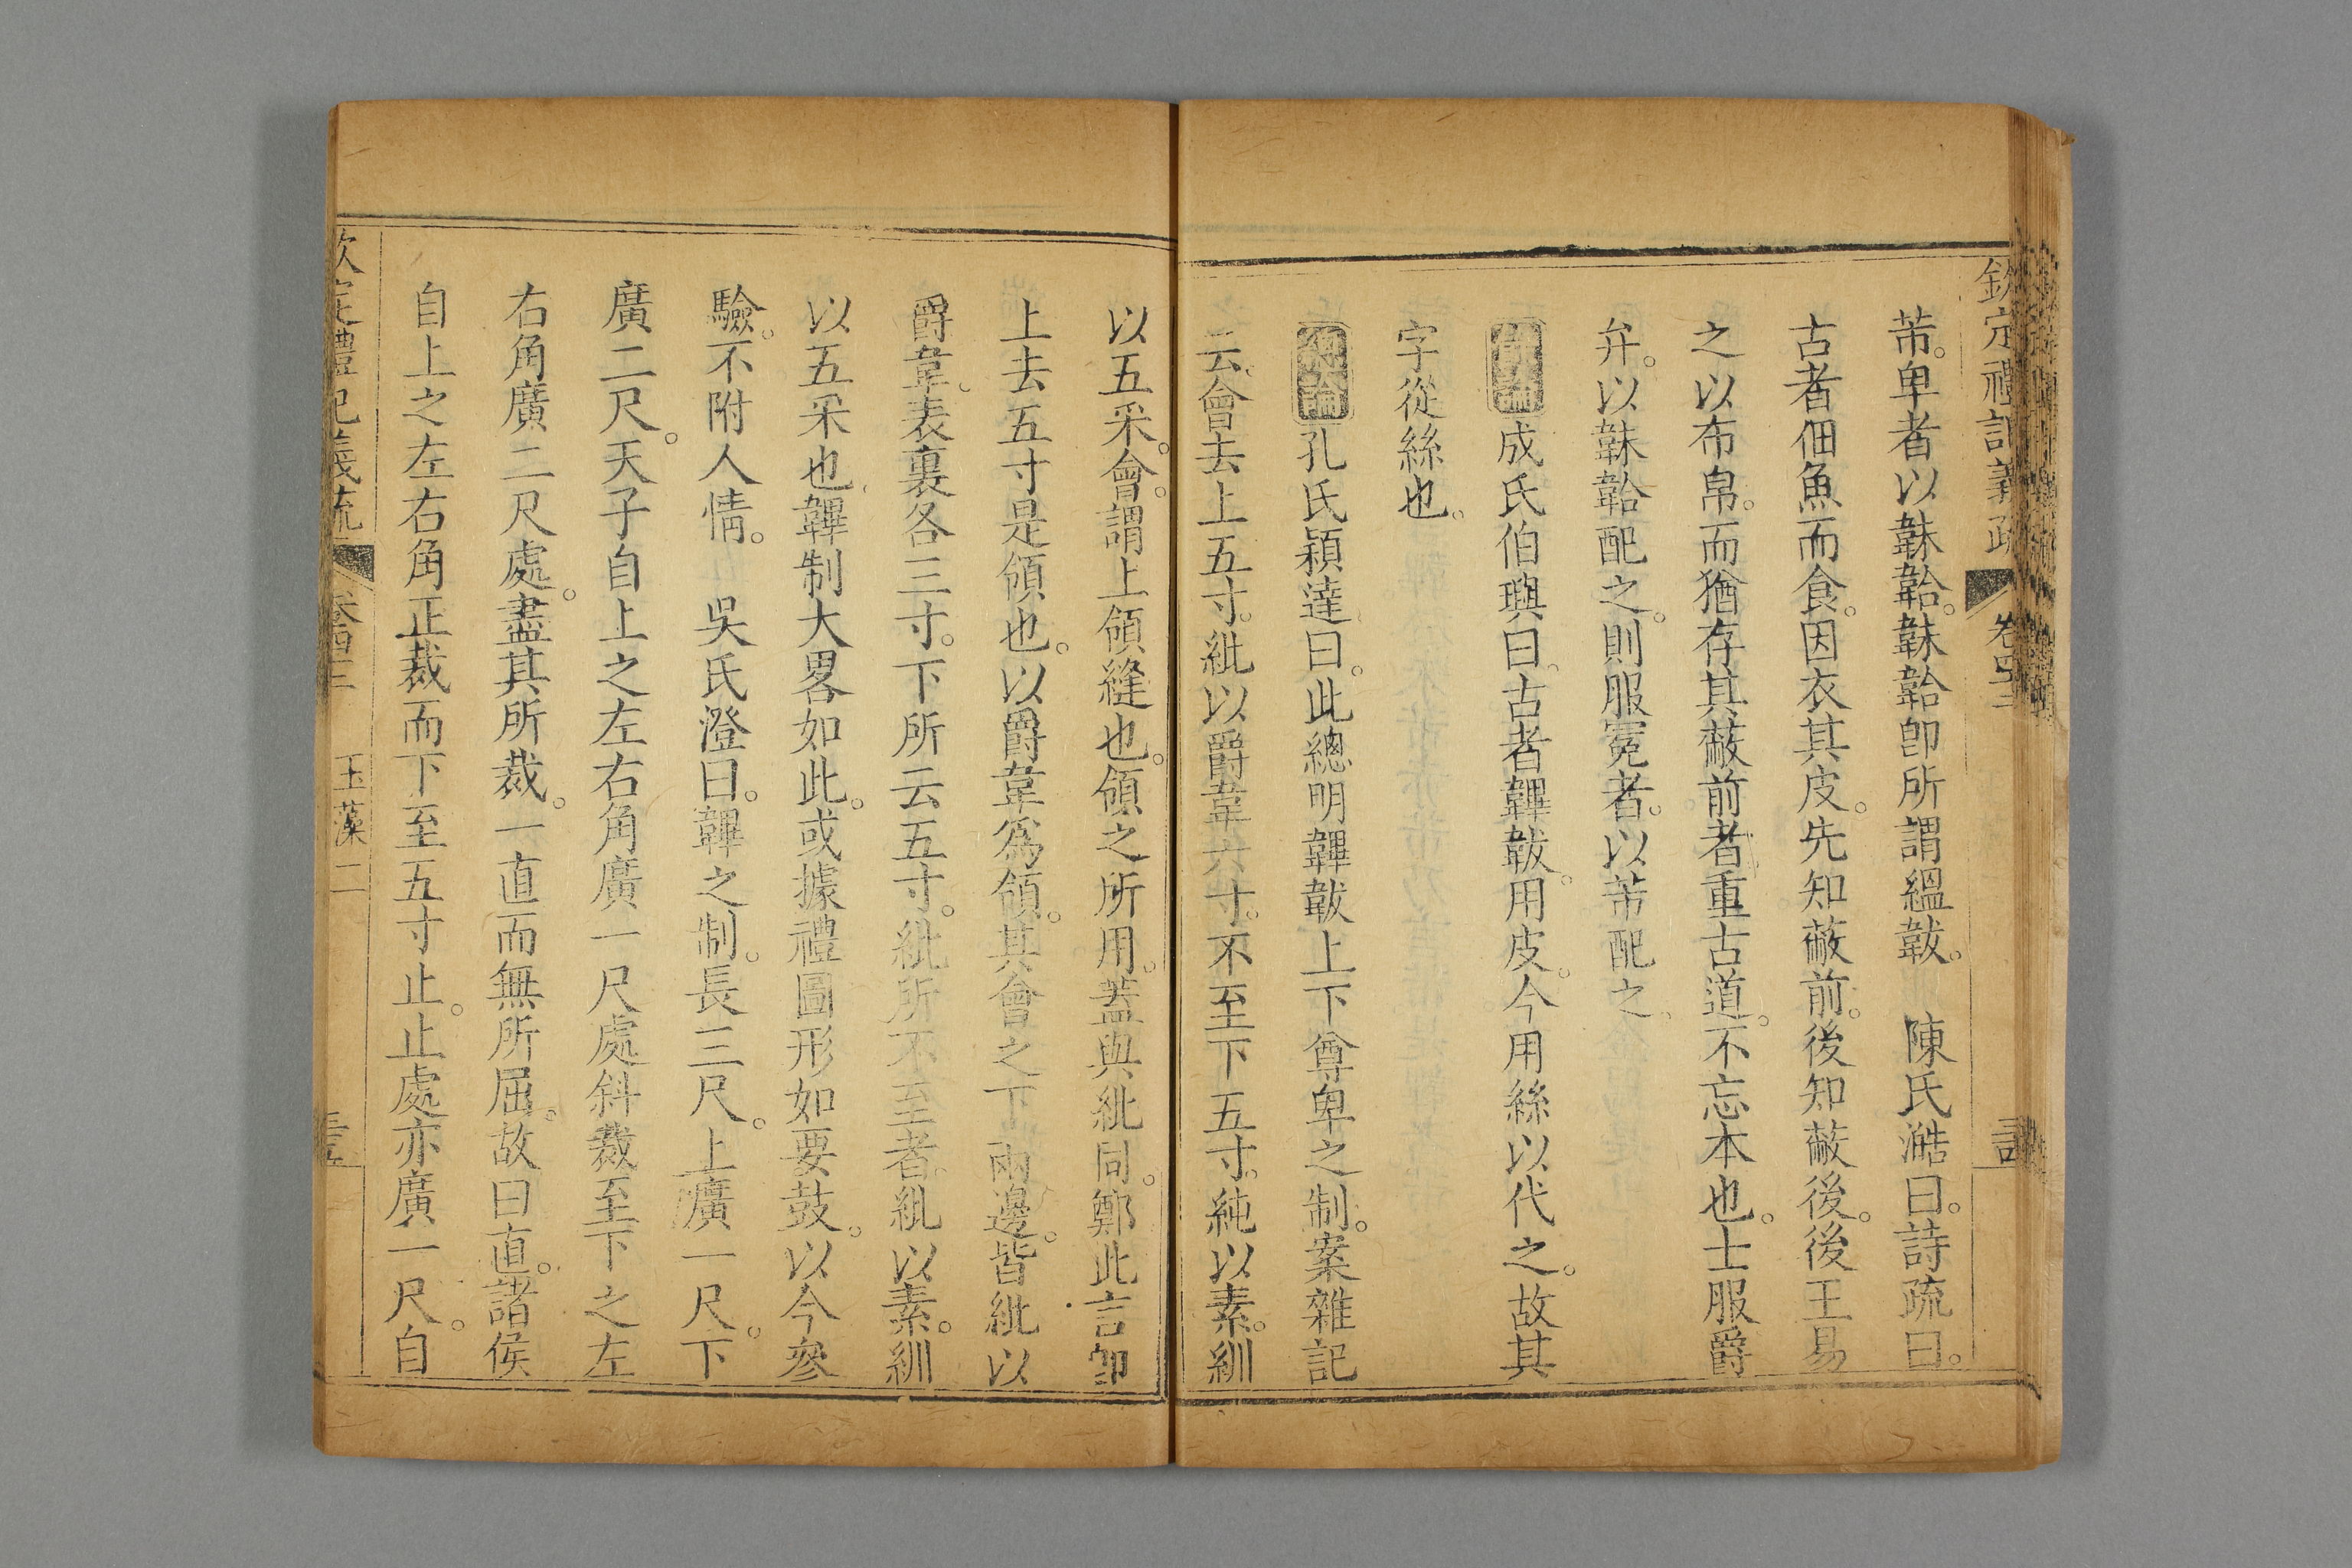 欽定禮記義疏 卷四三
芾。卑者以韎韐。韎韐卽所謂縕韍。 陳氏澔曰。詩疏曰。
古者佃魚而食。因衣其皮。先知蔽前。後知蔽後。後王易
之以布帛。而猶存其蔽前者。重古道。不忘本也。士服爵
弁。以韎韐配之。則服冕者。以芾配之。
成氏伯璵曰。古者韠韍。用皮。今用絲以代之。故其
字從絲也。
孔氏穎達曰。此總明韠韍上下尊卑之制。案雜記
云。會去上五寸。紕以爵韋六寸。不至下五寸。純以素。紃
以五采。會。謂上領縫也。領之所用。蓋與紕同。鄭此言卽
上去五寸是領也。以爵韋爲領。其會之下。兩邊。皆紕以
爵韋。表裏各三寸。下所云五寸。紕所不至者。紕以素。紃
以五采也。韠制大畧如此。或據禮圖形如要鼓。以今參
驗。不附人情。 吳氏澄曰。韠之制。長三尺。上廣一尺。下
廣二尺。天子自上之左右角廣一尺處斜裁至下之左
右角廣二尺處。盡其所裁。一直而無所屈。故曰直。諸侯
自上之左右角正裁而下至五寸止。止處亦廣一尺。自
欽定禮記義疏 卷四三 玉藻二